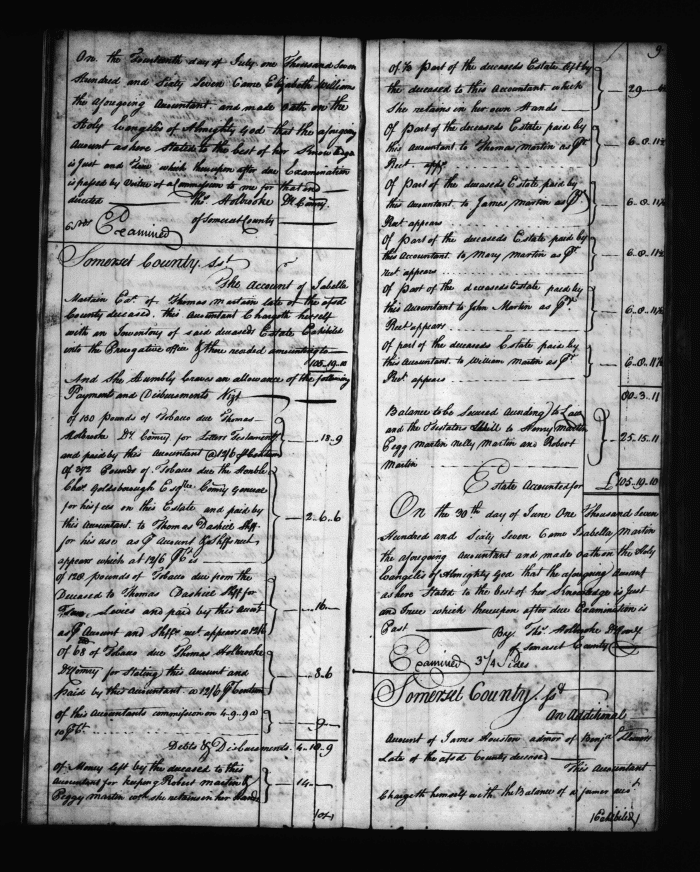 On the Fourteenth day of July one Thousand Seven
Hundred and Sixty Seven Came Elizabeth Williams
the aforegoing Accountant and made Oath on the
Holy Evangles of Almighty God that the aforegoing
Account as here Stated to the best of her Knowledge
is Just and True which thereupon after due Examination
is passed by Virtue of a Commission to me for that end
directed Thos. Holbrooke Dy. Comry.
of Somerset County
6 Sides Examined
Somerset County Sst
The Account of Isabella
Martain Exx. of Thomas Martain late of the afsd
County deceased. this Accountant Chargeth herself
with an Inventory of said deceaseds Estate Exhibited
into the Prerogative office & there recorded amounting to
£105..19..10
And She Humbly Craves an allowance of the following
Payments and Disbursements Vizt
of 150 pounds of Tobacco due Thomas
Holbrooke Dy. Comry. for Letters Testamenty
and paid by this Accountant @ 12/6 ℔ Centum
18..9
of 372 Pounds of Tobacco due the Honble
Chas. Goldsborough Esqre. Comry General
for his fees on this Estate and paid by
this Accountant to Thomas Dashiell Shff
for his use as ℔ Account & Shffs rect
appears which at 12/6 ℔ Ct is
2..6..6
of 128 pounds of Tobacco due from the
Deceased to Thomas Dashiell Shff for
Levies and paid by this Accot
as ℔ Account and Shffs rect. appears @ 12/6
16..
of 68 of Tobacco due Thomas Holbrooke
Dy Comry for Stating this Account and
paid by this Accountant @ 12/6 ℔ Centum
8..6
of this Accountants commission on 4..9..9 @
10 ℔ Ct.
9..
Debts & Disbursements 4..10..9
of Money left by the deceased to this
Accountant for keeping Robert Martin &
Peggy Martin wch she retains in her Hands
14..
9
of ⅓ part of the deceaseds Estate left by
the deceased to this Accountant which
She retains in her own Hands
29
Of Part of the deceaseds Estate paid by
this Accountant to Thomas Martin as ℔
Rect. apps.
6..0..11½
Of Part of the deceaseds Estate paid by
this Accountant to James Martin as ℔
Rect appears
6..0..11½
Of Part of the deceaseds Estate paid by
this Accountant to Mary Martin as ℔
rect appears
6..0..11½
Of Part of the deceaseds Estate paid by
this Accountant to John Martin as ℔
Rect appears
6..0..11½
Of part of the deceaseds Estate paid by
this Accountant to William Martin as ℔
Rect. appears
6..0..11½
80..3..11
Balance to be Secured according to Law
and the Testators Will to Henry Martin
Pegg Martin Nelly Martin and Robert
Martin
25..15..11
Estate Accounted for £105..19..10
On the 30th day of June One Thousand Seven
Hundred and Sixty Seven Came Isabella Martin
the aforegoing Accountant and made oath on the Holy
Evangles of Almighty God that the aforegoing Account
as here Stated to the best of her Knowledge is Just
and True which thereupon after due Examination is
Past By Thos. Holbrooke Dy Comry
of Somerset County
Examined 3¼ Sides
Somerset County Sst
An Additional
Account of James Houston admor of Benja.
Late of the afsd County deceased
This Accountant
Chargeth himself with the Balance of a former accot
Exhibited